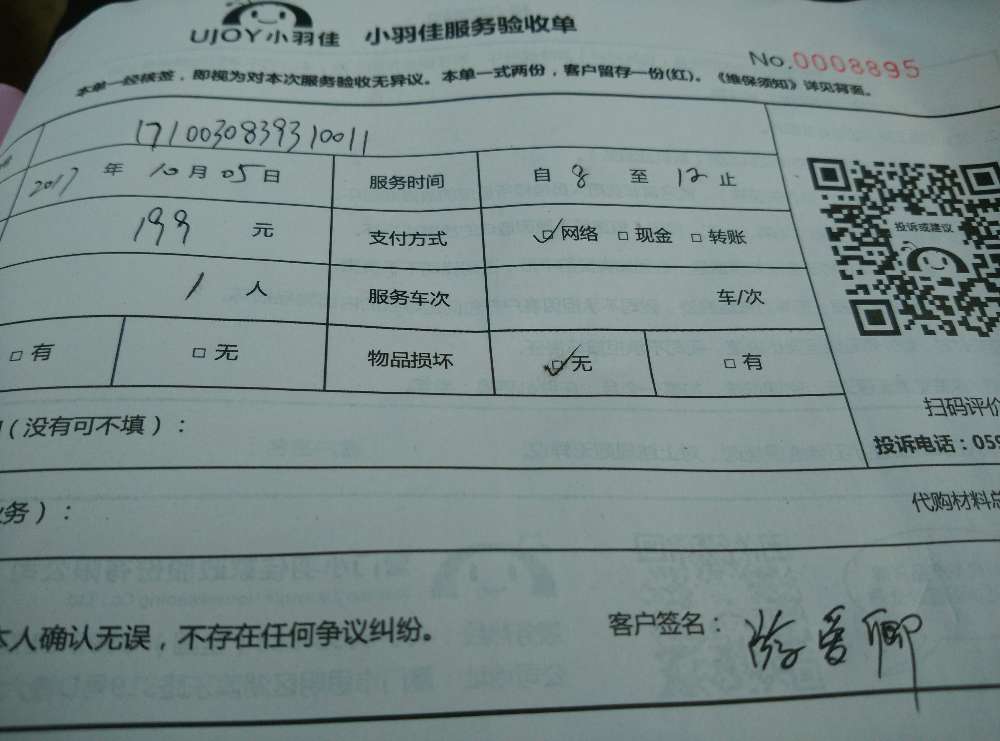 UJOY小羽佳 小羽佳服务验收单
No.0008895
本单一经核签，即视为对本次服务验收无异议。本单一式两份，客户留存一份(红)。《维保须知》详见背面。
1710030839310011
2017 年 10 月 05 日 服务时间 自 8 至 12 止
199 元 支付方式 ☑网络 □现金 □转账
投诉或建议
1 人 服务车次 车/次
□有 □无 物品损坏 ☑无 □有
（没有可不填）：
扫码评价
投诉电话：059
务）：
代购材料总
本人确认无误，不存在任何争议纠纷。 客户签名：